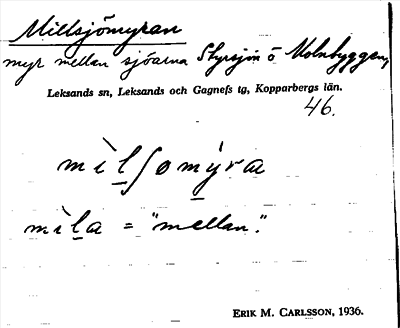 Millsjömyran
myr mellan sjöarna Styrsjön o Molnbyggen,
Leksands sn, Leksands och Gagnefs tg, Kopparbergs län.
46.
mìlʃomýra
mìla = "mellan".
ERIK M. CARLSSON, 1936.